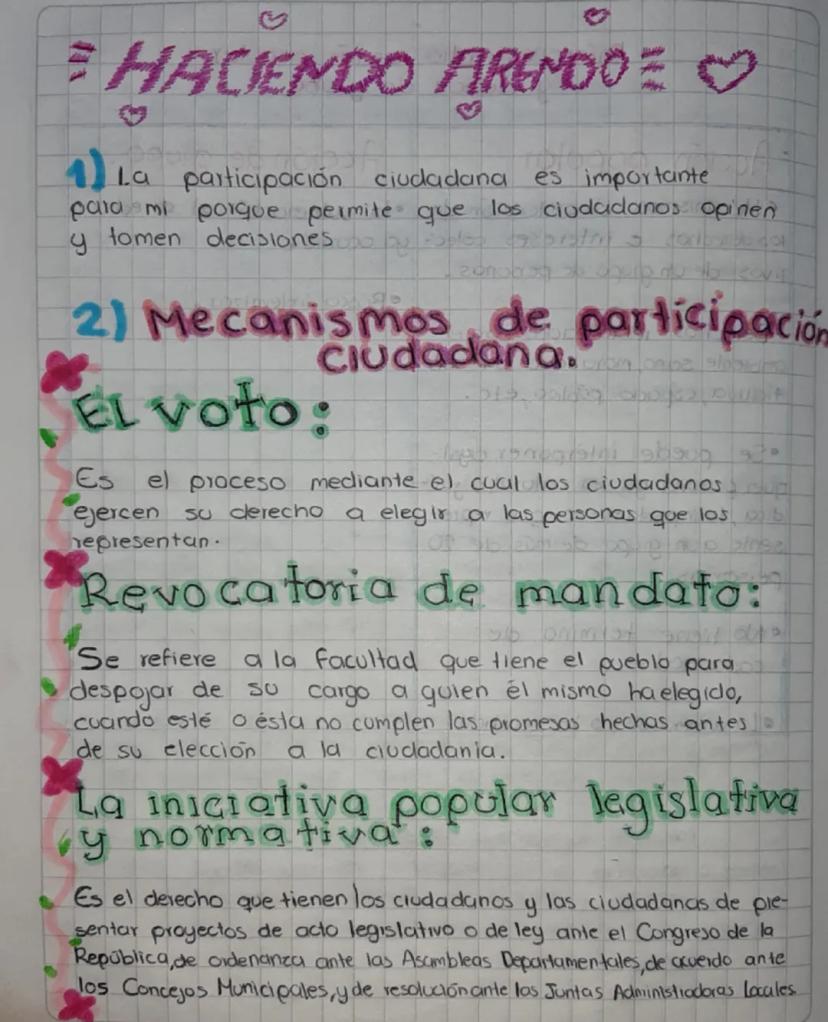 HACIENDO ARENDO
1) La participación ciudadana es importante
para mi porque permite que los ciudadanos opinen
y tomen decisiones
2) Mecanismos de participación
ciudadana.
EL voto:
Es el proceso mediante el cual los ciudadanos
ejercen su derecho a elegir a las personas que los
representan.
Revocatoria de mandato:
Se refiere a la facultad que tiene el pueblo para
despojar de su cargo a quien él mismo ha elegido,
cuando esté o ésta no cumplen las promesas hechas antes
de su elección a la ciudadania.
La iniciativa popular legislativa
y normativa:
Es el derecho que tienen los ciudadanos y las ciudadanas de pre-
sentar proyectos de acto legislativo o de ley ante el Congreso de la
República, de ordenanza ante las Asambleas Departamentales, de acuerdo ante
los Concejos Municipales, y de resolución ante las Juntas Administradoras Locales